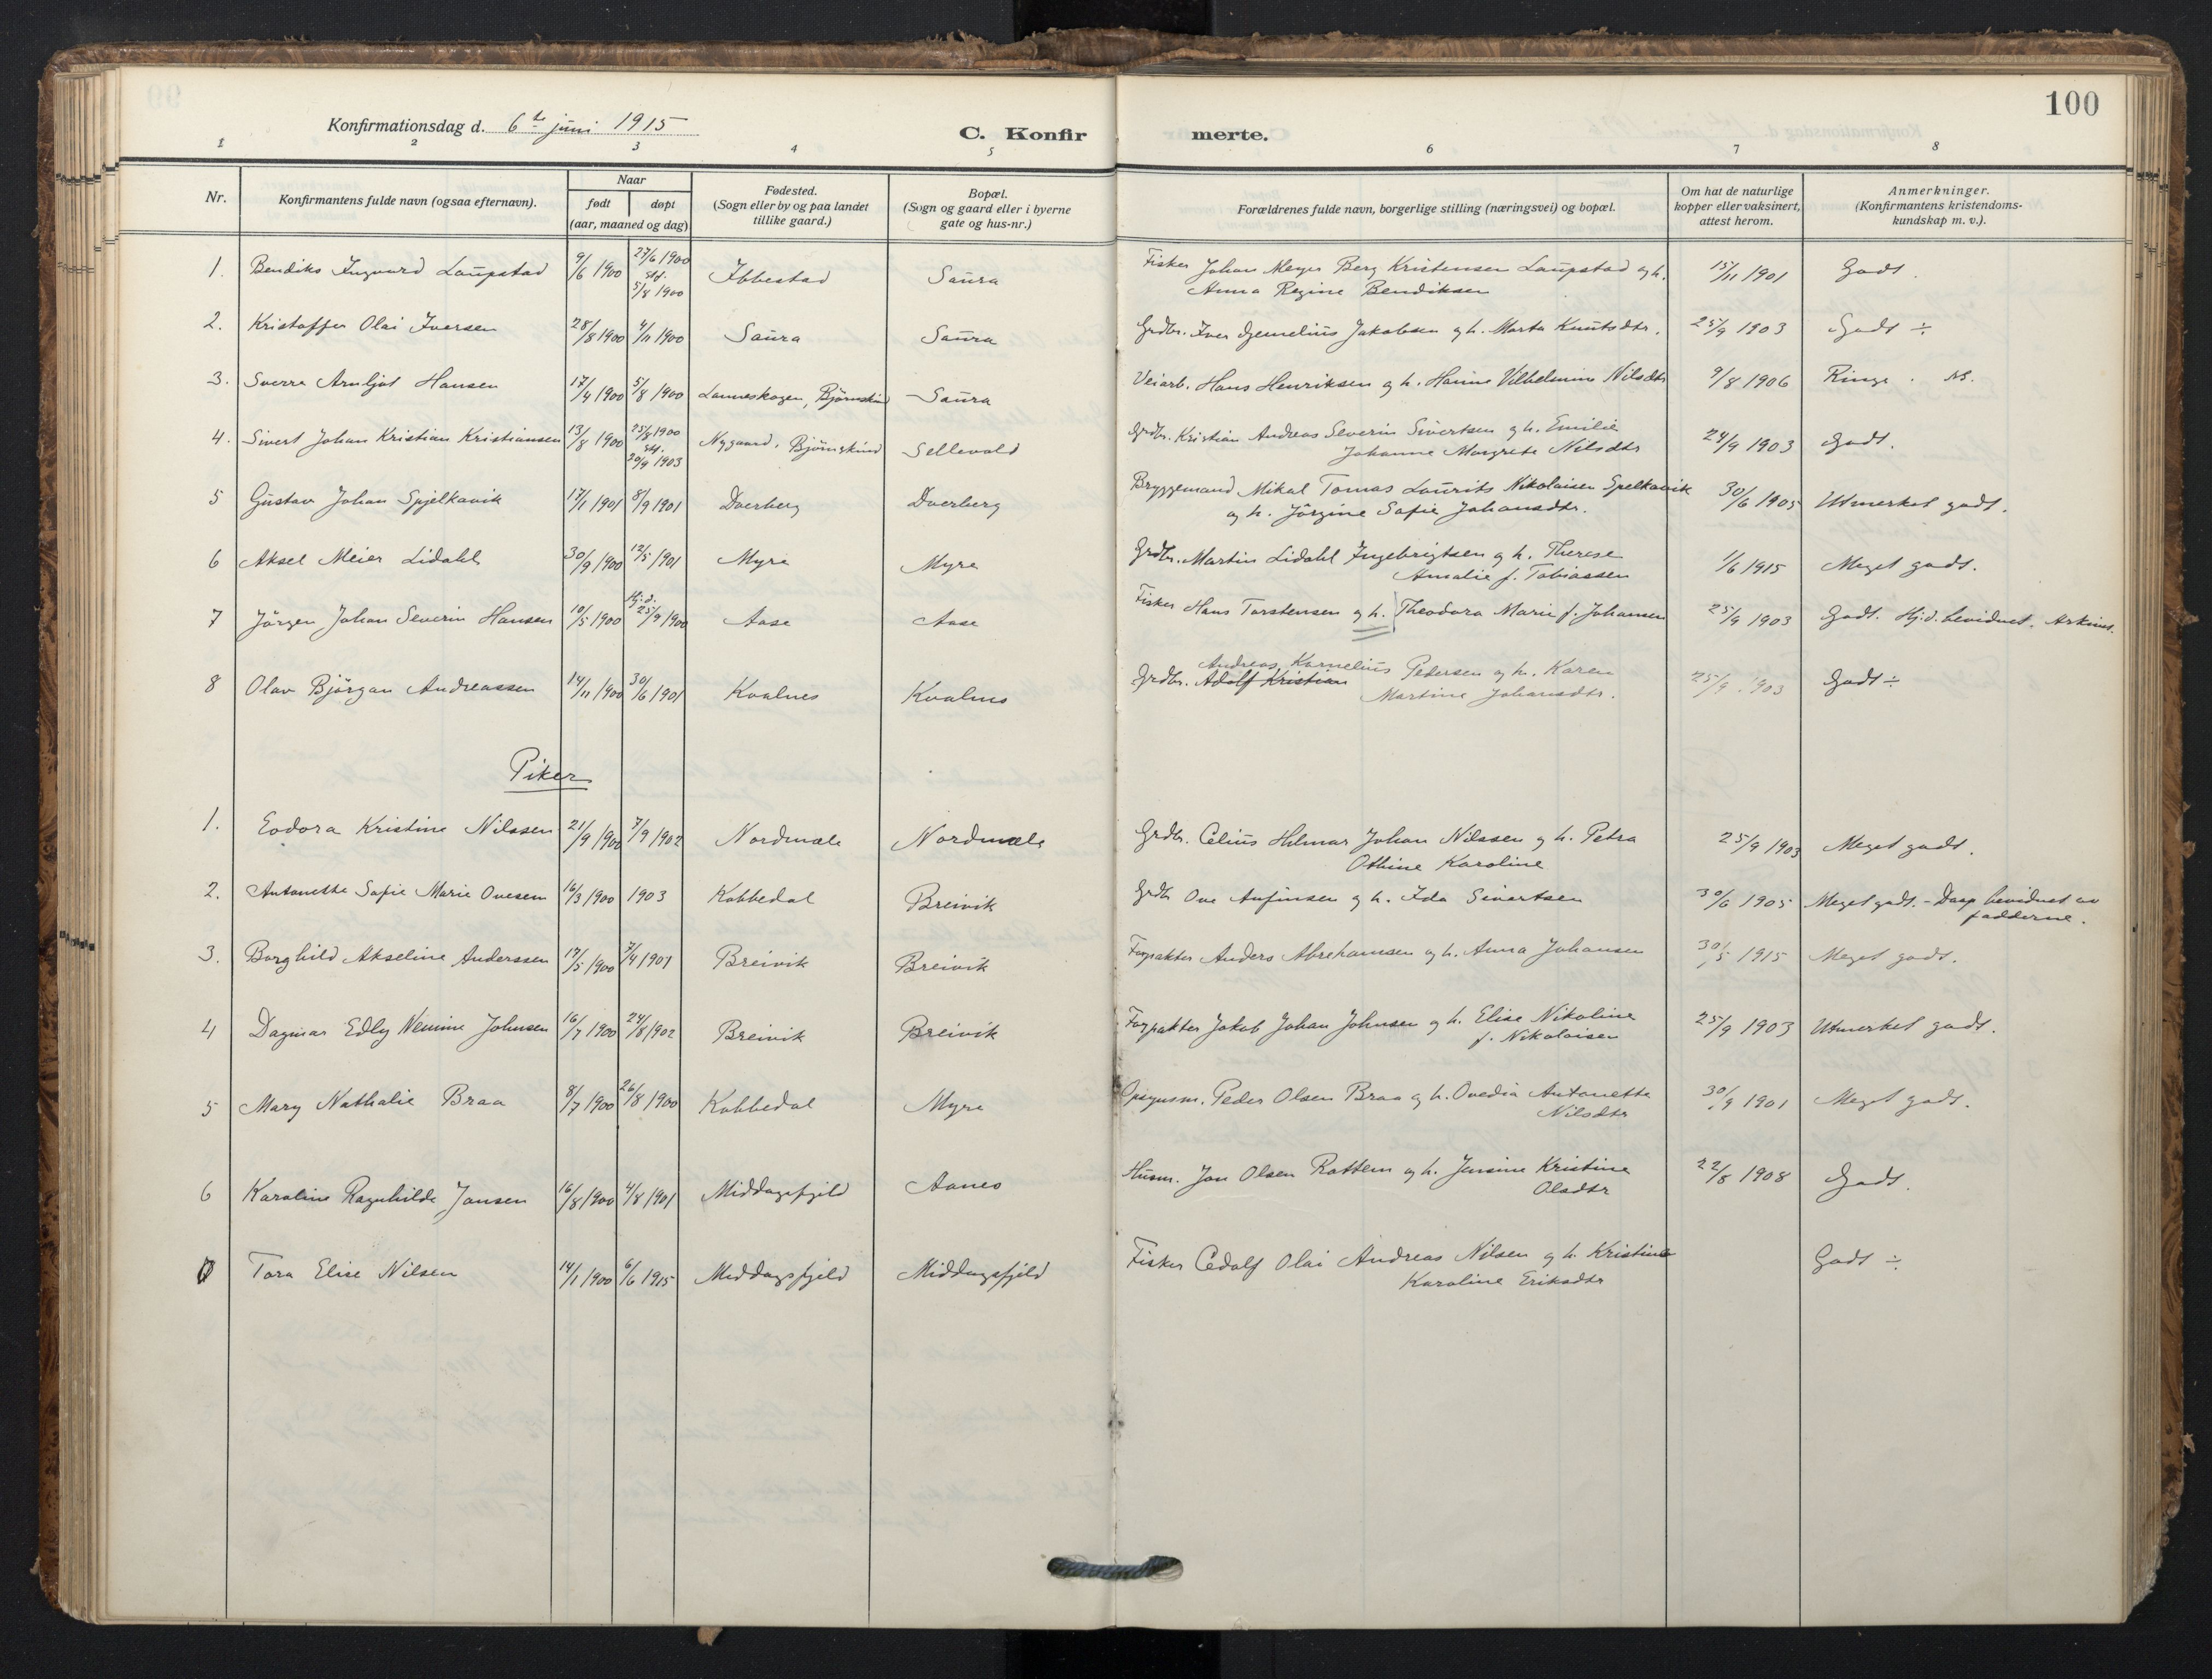 100
Konfirmationsdag d. 6te juni 1915
C. Konfirmerte.
1 2 3 4 5 6 7 8
Nr.
Konfirmantens fulde navn (ogsaa efternavn).
Naar
født døpt
(aar, maaned og dag)
Fødested.
(Sogn eller by og paa landet
tillike gaard.)
Bopæl.
(Sogn og gaard eller i byerne
gate og hus-nr.)
Forældrenes fulde navn, borgerlige stilling (næringsvei) og bopæl.
Om hat de naturlige
kopper eller vaksinert,
attest herom.
Anmerkninger.
(Konfirmantens kristendoms-
kundskap m. v.).
1. Bendiks Ingvard Laupstad 9/6 1900 27/6 1900 stf. 5/8 1900 Ibbestad Saura Fisker Johan Meyer Berg Kristensen Laupstad og h. 15/11 1901 Godt.
Anna Regine Bendiksen
2. Kristoffer Olai Iversen 28/8 1900 4/11 1900 Saura Saura Grdbr. Iver Jakobsen og h. Marta Knutsdtr. 25/9 1903 Godt ÷
3. Sverre Arnljot Hansen 17/4 1900 5/8 1900 Lanneskogen, Bjørnskind Saura Veiarb. Hans Henriksen og h. Hanna Vilhelmine Nilsdtr 9/8 1906 Ringe.
4. Sivert Johan Kristian Kristiansen 13/8 1900 25/8 1900 stf. 20/9 1903 Nygaard, Bjørnskind Sellevold Grdbr. Kristian Andreas Severin Sivertsen og h. Emilie 24/9 1903 Godt.
Johanne Margrete Nilsdtr
5 Gustav Johan Spjelkavik 17/1 1901 8/9 1901 Dverberg Dverberg Bryggemand Mikal Tomas Laurits Nikolaisen Spelkavik 30/6 1905 Utmerket godt.
og h. Jørgine Sofie Johansdtr.
6 Aksel Meier Lidahl 30/9 1900 12/5 1901 Myre Myre Grdbr. Martin Lidahl Ingebrigtsen og h. Therese 1/6 1915 Meget godt.
Amalie f. Tobiassen
7 Jørgen Johan Severin Hansen 10/5 1900 Hj.d. 25/9 1900 Aase Aase Fisker Hans Torstensen og h. Theodora Marie f. Johansen 25/9 1903 Godt. Hj.d. bevidnet.
8 Olav Bjørgan Andreassen 14/11 1900 30/6 1901 Kvalnes Kvalnes Grdbr. Adolf Kristian Andreas Kornelius Petersen og h. Karen 25/9 1903 Godt ÷
Martine Johansdtr.
Piker
1. Eodora Kristine Nilssen 21/9 1900 7/9 1902 Nordmæle Nordmæle Grdbr. Celius Hilmar Johan Nilssen og h. Petra 25/9 1903 Meget godt.
Othine Karoline
2. Antonette Sofie Marie Ovesen 16/3 1900 1903 Kobbedal Breivik Grdb Ove Anfinsen og h. Ida Sivertsen 30/6 1905 Meget godt. - Daap bevidnet av
fadderne.
3. Borghild Akseline Anderssen 17/5 1900 7/4 1901 Breivik Breivik Forpakter Anders Abrahamsen og h. Anna Johansen 30/5 1915 Meget godt.
4 Dagmar Edly Johnsen 16/7 1900 24/8 1902 Breivik Breivik Forpakter Jakob Johan Johnsen og h. Elise Nikoline 25/9 1903 Utmerket godt.
f. Nikolaisen
5 Mary Nathalie Braa 8/7 1900 26/8 1900 Kobbedal Myre Opsynsm. Peder Olsen Braa og h. Ovedia Antonette 30/9 1901 Meget godt.
Nilsdtr
6 Karoline Ragnhilde Jansen 16/8 1900 4/8 1901 Middagsfjeld Aanes Husm. Jon Olsen Rottem og h. Jensine Kristine 22/8 1908 Godt.
Olsdtr
7 Tora Elise Nilsen 14/1 1900 6/6 1915 Middagsfjeld Middagsfjeld Fisker Cedolf Olai Andreas Nilsen og h. Kristine Godt ÷
Karoline Eriksdtr